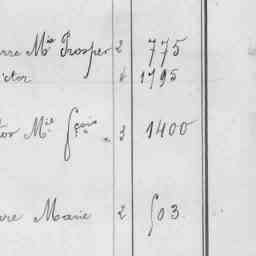 erre Mie Prosper 2 775
ictor 8 1795
tor Mie fçois 3 1400
erre Marie 2 503